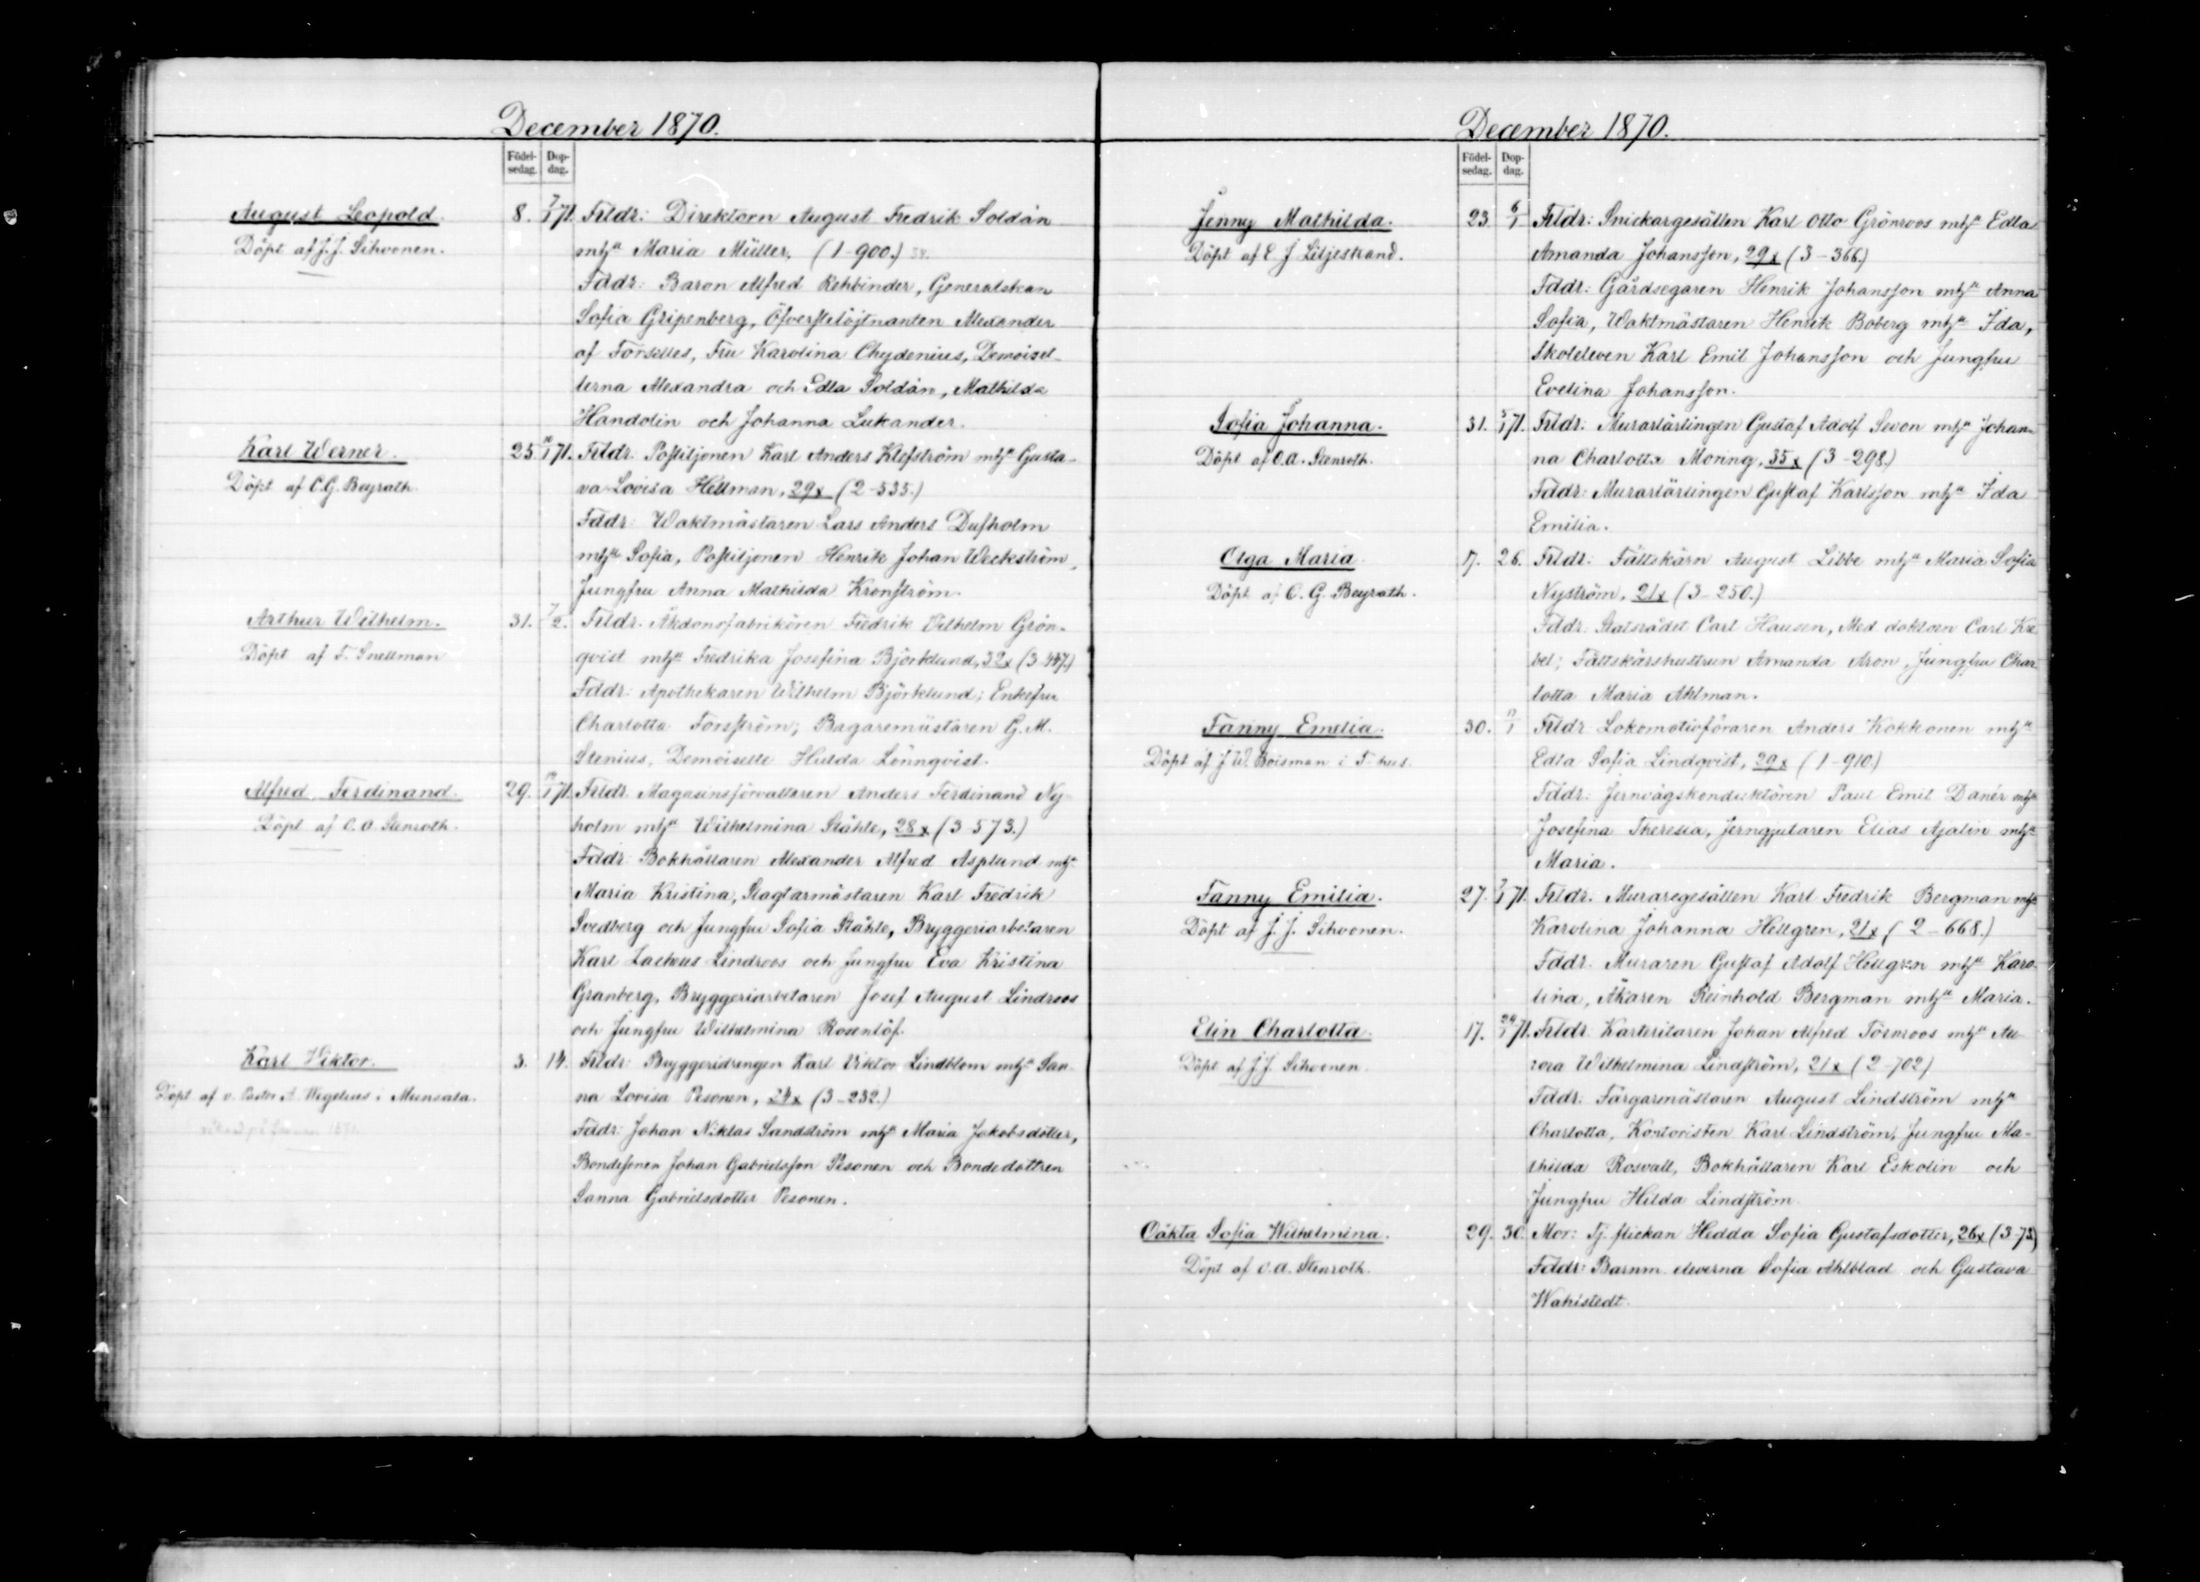 December 1870.
Födel-
sedag.
Dop-
dag.
August Leopold
Döpt af J. J. Sihvonen.
8. 7/1 71. Frldr: Direktorn August Fredrik Soldán
mha Maria Müller, (1-900.)
Fddr: Baron Alfred Rehbinder, Generalskan
Sofia Gripenberg, Öfverstelöjtnanten Alexander
af Forselles, Fru Karolina Chydenius, Demoisel-
lerna Alexandra och Edla Soldán, Mathilda
Handolin och Johanna Lukander.
Karl Werner.
Döpt af C. G. Beyrath.
25. /1 71. Frldr. Postiljonen Karl Anders Klefström mha Gusta-
va Lovisa Hellman, 29x (2-535.)
Fddr: Waktmästaren Lars Anders Dufholm
mha Sofia, Postiljonen Henrik Johan Weckström,
Jungfru Anna Mathilda Kronström.
Arthur Wilhelm.
Döpt af F. Snellman
31. 7/2. Frldr. Åkdonsfabrikören Fredrik Vilhelm Grön-
qvist mha Fredrika Josefina Björklund, 32x (3-447.)
Fddr: Apothekaren Wilhelm Björklund; Enkefru
Charlotta Forsström; Bagaremästaren G. M.
Stenius, Demoiselle Hulda Lönnqvist.
Alfred Ferdinand.
Döpt af O. A. Stenroth.
29. /1 71. Frldr. Magasinsförvaltaren Anders Ferdinand Ny-
holm mha Wilhelmina Ståhle, 28x (3-573.)
Fddr: Bokhållaren Alexander Alfred Asplund mha
Maria Kristina, Slagtarmästaren Karl Fredrik
Svedberg och Jungfru Sofia Ståhle, Bryggeriarbetaren
Karl Lacheus Lindroos och Jungfru Eva Kristina
Granberg, Bryggeriarbetaren Josef August Lindroos
och Jungfru Wilhelmina Rosenlöf.
Karl Viktor.
Döpt af v. Pastor A. Wegelius i Munsala.
3. 14. Frldr: Bryggeridrengen Karl Viktor Lindblom mha San-
na Lovisa Pesonen, 24x (3-232.)
Fddr: Johan Niklas Sandström mha Maria Jakobsdotter,
Bondesonen Johan Gabrielsson Pesonen och Bondedottren
Sanna Gabrielsdotter Pesonen.
December 1870.
Födel-
sedag.
Dop-
dag.
Jenny Mathilda.
Döpt af E. J. Liljestrand.
23 6/1 Frldr: Snickargesällen Karl Otto Grönroos mha Edla
Amanda Johansson, 29x (3-366.)
Fddr: Gårdsegaren Henrik Johansson mha Anna
Sofia, Waktmästaren Henrik Boberg mha Ida,
Skoleleven Karl Emil Johansson och Jungfru
Evelina Johansson.
Sofia Johanna.
Döpt af O. A. Stenroth.
31. 5/1 71. Frldr: Murarlärlingen Gustaf Adolf Sevon mha Johan-
na Charlotta Moring, 35x (3-298.)
Fddr: Murarlärlingen Gustaf Karlsson mha Ida
Emilia.
Olga Maria
Döpt af C. G. Beyrath.
17. 26. Frldr: Fältskärn August Libbe mha Maria Sofia
Nyström, 21x (3-250.)
Fddr: Statsrådet Carl Hausen, Med. doktorn Carl Kre-
bel; Fältskärshustrun Amanda Aron, Jungfru Char-
lotta Maria Ahlman.
Fanny Emelia.
Döpt af J. W. Boisman i T. hus.
30. /1 Frldr Lokomotivföraren Anders Kokkonen mha
Edla Sofia Lindqvist, 29x (1-910.)
Fddr: Jernvägskonduktören Paul Emil Danér mha
Josefina Theresia, Jerngjutaren Elias Ajalin mha
Maria.
Fanny Emilia.
Döpt af J. J. Sihvonen.
27. 7/1 71. Frldr. Muraregesällen Karl Fredrik Bergman mha
Karolina Johanna Hellgren, 21x (2-668.)
Fddr. Muraren Gustaf Adolf Hellgren mha Karo-
lina, Åkaren Reinhold Bergman mha Maria.
Elin Charlotta.
Döpt af J. J. Sihvonen.
17. 24/1 71. Frldr. Kartritaren Johan Alfred Törnroos mha Au-
rora Wilhelmina Lindström, 21x (2-702)
Fddr: Färgarmästaren August Lindström mha
Charlotta, Kontoristen Karl Lindström, Jungfru Ma-
thilda Rosvall, Bokhållaren Karl Eskolin och
Jungfru Hilda Lindström.
Oäkta Sofia Wilhelmina.
Döpt af O. A. Stenroth.
29. 30. Mor: Tj. flickan Hedda Sofia Gustafsdotter, 26x (3-73)
Fddr: Barnm. eleverna Sofia Ahlblad och Gustava
Wahlstedt.